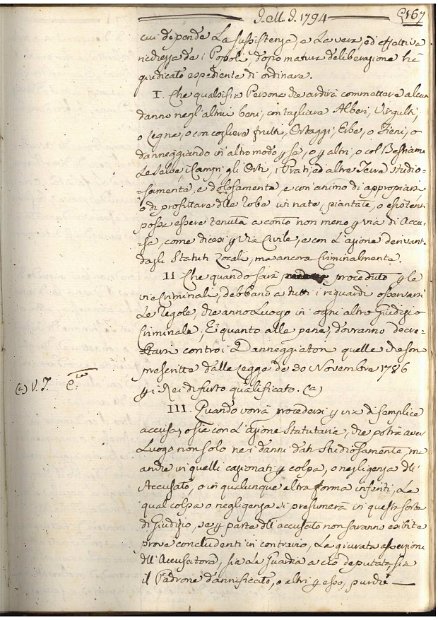 1794 167
cui dipende la sussistenza, e la vera, ed effettiva
ricchezza de i Popoli, dopo mature deliberazioni hà
giudicato espediente di ordinare.
I. Che qualsisia Persona che ardirà commettere alcun
danno negl'altrui beni, con tagliare Alberi, Virgulti,
o Legna, o con cogliere frutti, Ortaggi, Erbe, o Fieni, o
danneggiando in altro modo p se, o p altri, o col Bestiame
le Selve i Campi, gli Orti, i Prati, ed altre Terre studio-
samente, e dolosamente, e con animo di appropriarsi
o di profittare delle robe ivi nate, piantate, o esistenti
possa essere tenuta a conto non meno p via di Accu-
sa, come dicesi p Via Civile, e con l'azione
dagli Statuti locali, ma ancora Criminalmente.
II. Che quando sarà proceduto p le
vie Criminali, debbano a tutti i riguardi osservarsi
le regole, che anno luogo in ogni altro Giudizio
Criminale, E quanto alle pene, dovranno decre-
tarsi contro i Danneggiatori quelle che son
prescritte dalla Legge de 30 Novembre 1786
p i Rei di furto qualificato. (a)
(a) V. T.
III. Quando vorrà procedersi p via di semplice
accusa, o sia con l'azione Statutaria, che potrà aver
Luogo non solo ne i danni dati Studiosamente, ma
anche in quelli cagionati p colpa, o negligenza dell'
Accusato, o in qualunque altra forma inferiti, la
qual colpa o negligenza si presumerà in questa sorte
di Giudizio, se p parte dell'accusato non saranno esibite
prove concludenti in contrario, la giurata asserzione
dell'Accusatore, sia la Guardia a ciò deputata, sia
il Padrone dannificato, o altri p esso, purchè